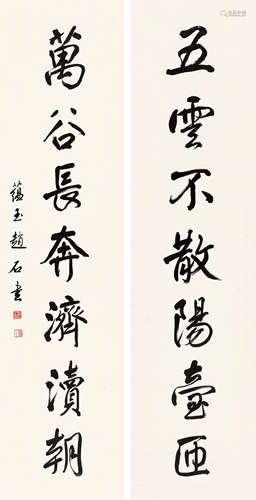 五雲不散陽臺匝
萬谷長奔濟瀆朝
蘊玉趙石書